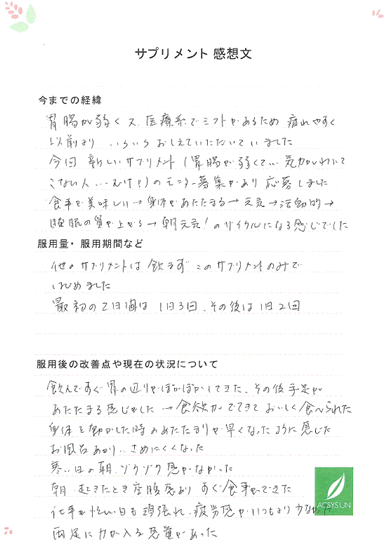 サプリメント 感想文
今までの経緯
胃腸が弱く又、医療系でシフトがあるため 疲れやすく
以前より、いろいろおしえていただいていました
今回 新しいサプリメント（胃腸が弱くて… 気力がわいて
こない人… むけ？）のモニター募集があり 応募しました
食事が美味しい→身体があたたまる→元気→活動的→
睡眠の質が上がる→朝元気！のサイクルになる感じでした
服用量・服用期間など
他のサプリメントは飲まず このサプリメントのみで
はじめました
最初の2日間は 1日3回、その後は1日2回
服用後の改善点や現在の状況について
飲んですぐ胃の辺りがぽかぽかしてきた、その後手足が
あたたまる感じがした →食欲がでてきておいしく食べられた
身体を動かした時のあたたまりが早くなったように感じた
お風呂あがり、さめにくくなった
寒い日の朝、ゾクゾク感がなかった
朝 起きたとき空腹感あり すぐ食事ができた
仕事が忙しい日も頑張れ、疲労感がいつもより少なかった
両足に力が入る感覚があった
ACSYSUN